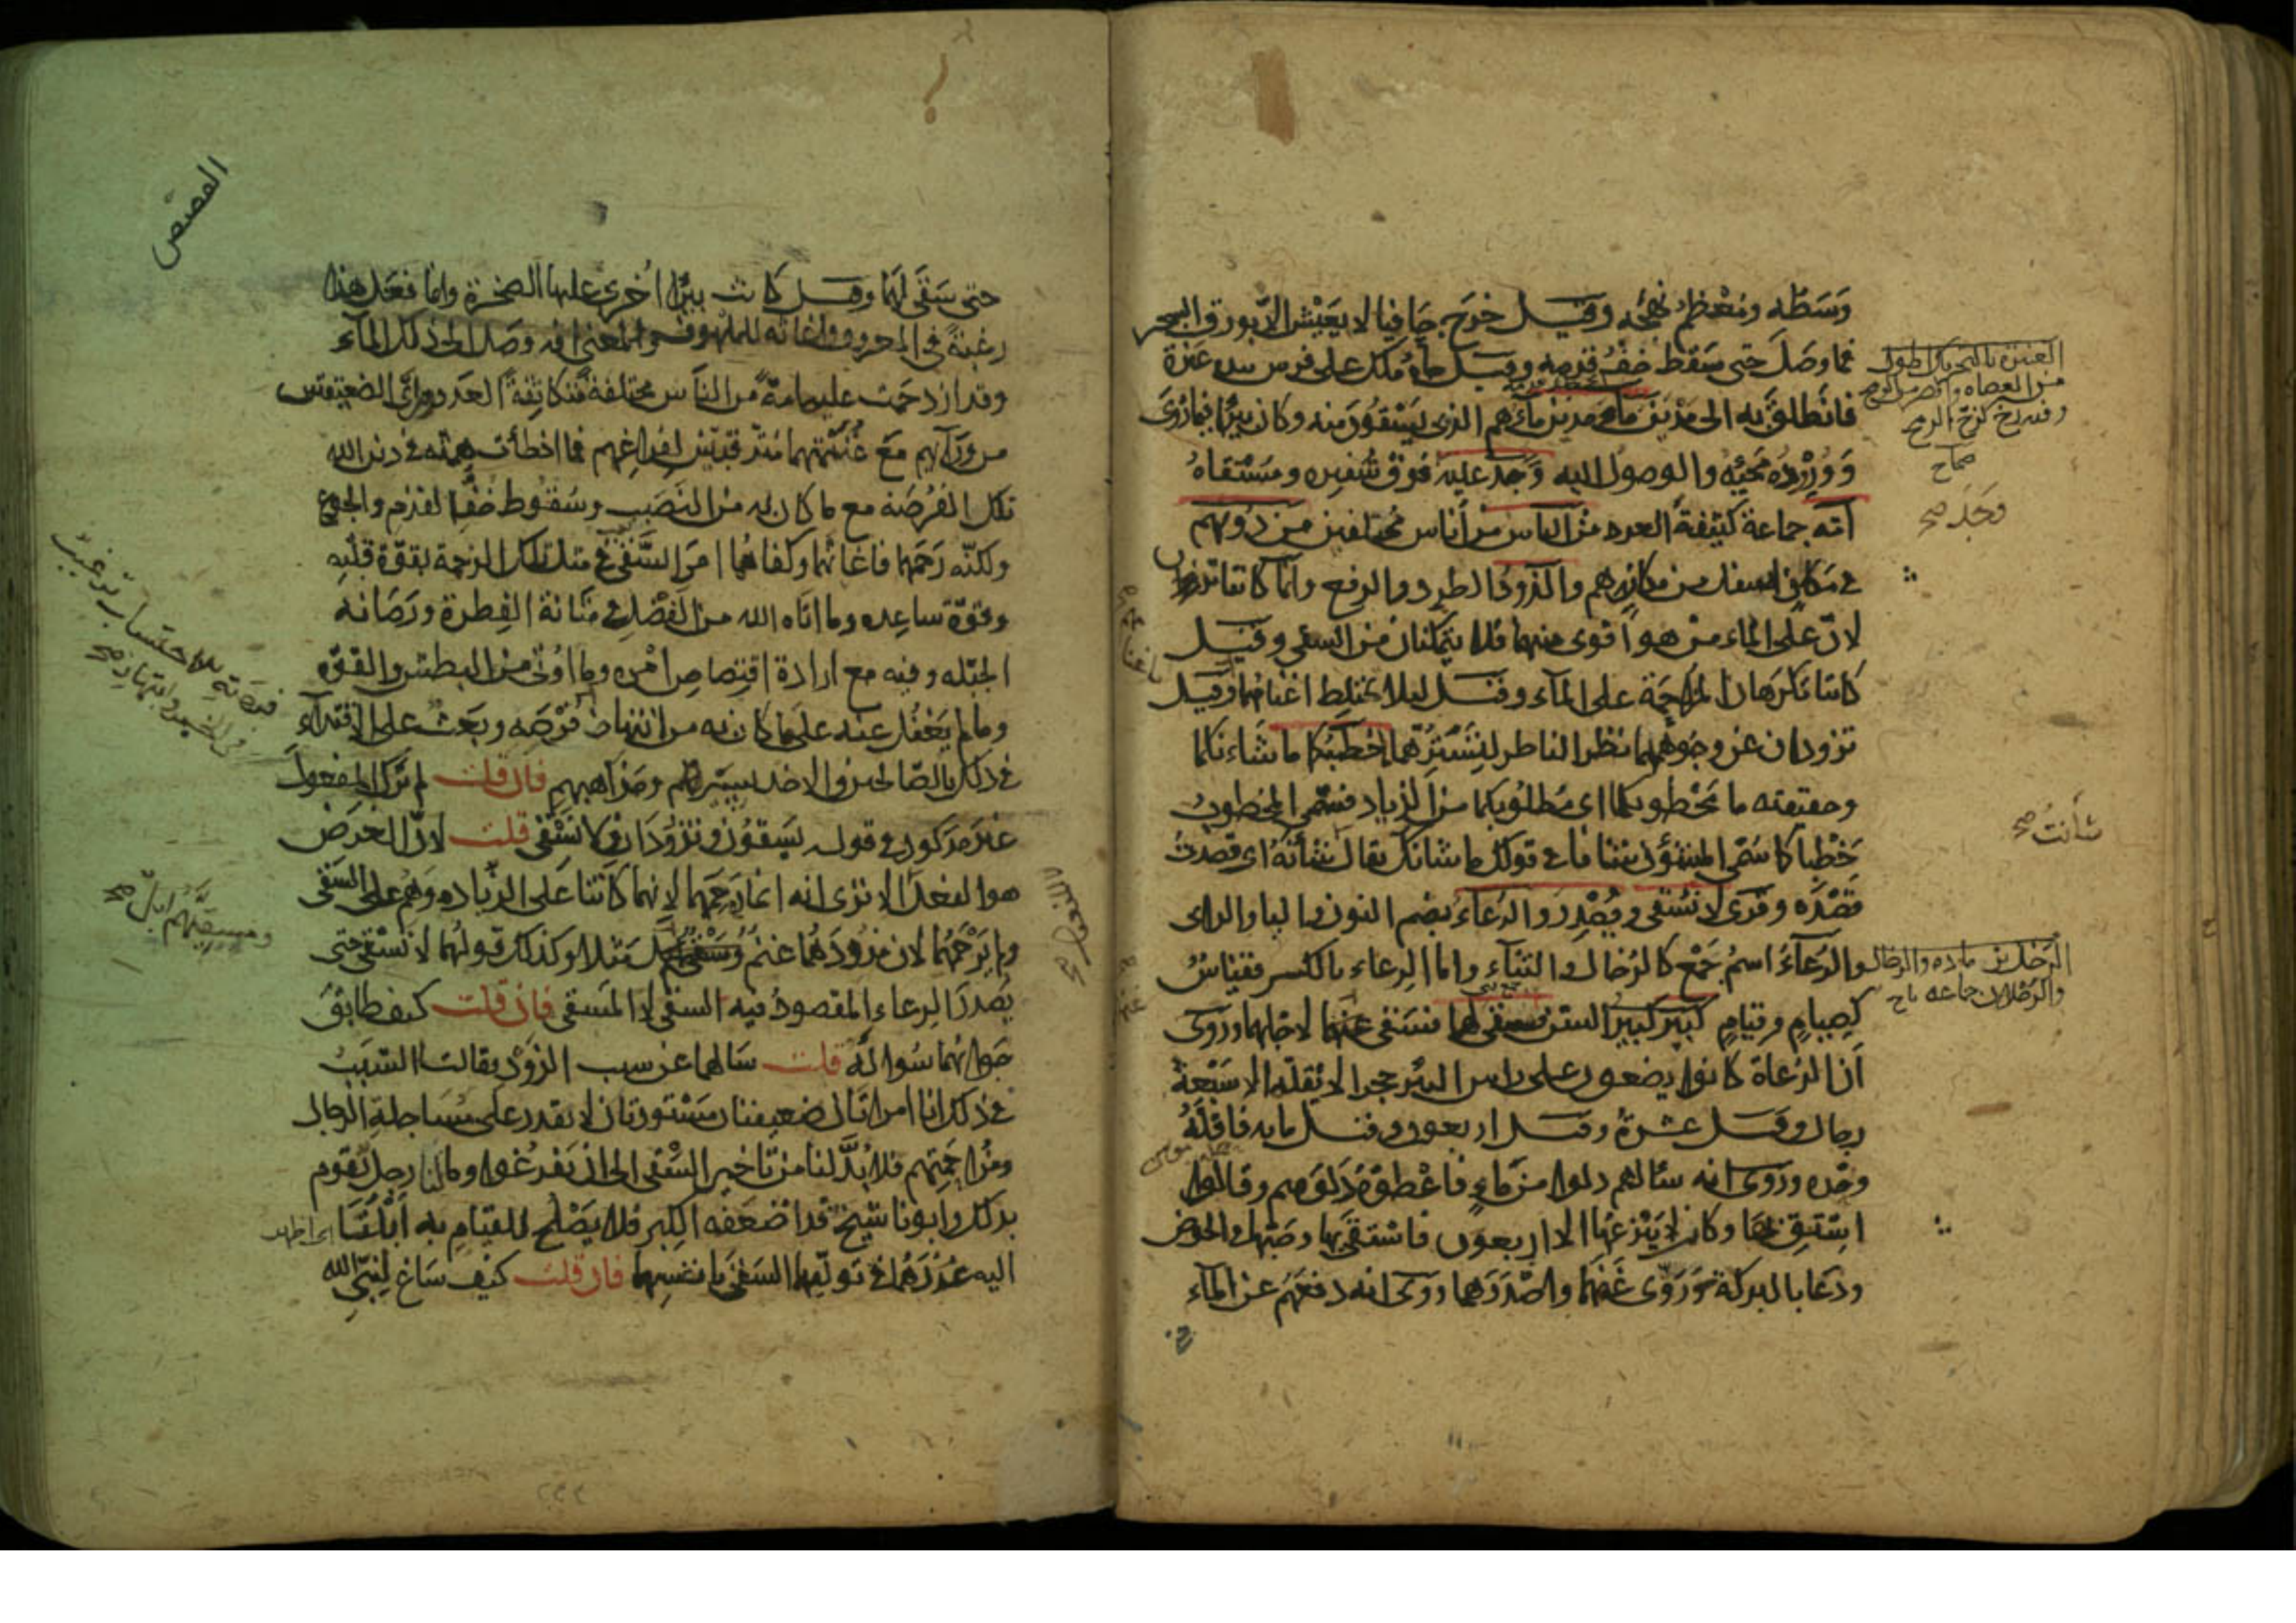 وَسَطه ومُعْظم نهجه وقيل خرج حافيا لا يعيش الا بورق الشجر
فما وصل حتى سقط خف قدمه وقيل جاءه ملك على فرس بيده عنزة
فانطلق به الى مدين ماء مدين ماءهم الذى يستقون منه وكان بيرا فيما روى
وَوُرُوده مجيئه والوصول اليه وجد عليه فوق شفيره ومستقاه
امّه جماعة كثيفة العدد من الناس من أناس مختلفين من دونهم
فى مكان اسفل من مكانهم والذود الطرد والدفع وانما كانتا تذودان
لان على الماء من هو أقوى منهما فلا يتمكنان من السقى وقيل
كانتا تكرهان المزاحمة على الماء وقيل ليلا تختلط اغنامهما وقيل
تذودان عن وجوههما نظر الناظر لتسترهما ما خطبكما ما شأنكما
وحقيقته ما مخطوبكما اى مطلوبكما من الذياد فسمى المخطوب
خَطْبا كما سُمى المشؤن شأنا فى قولك ما شانك يقال شأنت شأنه اى قصدت
قصده وقرى لا نسقى ويُصْدِر والرُعاء بضم النون والياء والراء
والرُعآءُ اسمُ جَمْع كالرُخال والثناء واما الرِعاء بالكسر فقياسٌ
كصيام وقيام كبير كبير السن فسقى لهما فسقى غنمهما لاجلهما وروى
أن الرعاة كانوا يضعون على راس البئر حجرا لا يقله الا سبعة
رجال وقيل عشرة وقيل اربعون وقيل مايه فاقلّهُ
وحده وروى انه سألهم دلوا من ماء فاعطوه دلوهم وقالوا
استق بها وكان لا ينزعها الا اربعون فاستقى بها وصبها فى الحوض
ودعا بالبركة وروّى غنمهما واصدرهما وروى انه دفعهم عن المآء
العنزة بالتحريك اطول
من العصا واقصر من الرمح
وفيه زج كزج الرمح
صحاح
وَجَدَ صح
شأنتُ صح
الرَخِل من والرخال
القصص
حتى سَقَى لهما وقيل كانت بيرًا اُخرى عليها الصخرة وانما فعل هذا
رغبةً فى المعروف واغاثة للملهوف والمعنى انه وصل الى ذلك المآء
وقد ازدحمت عليه امة من الناس مختلفة متكاثفة العدد وراى الضعيفتين
من ورآئهم مع غُنَيْمتهما مترقبتين لفراغهم فما اخطأت همته فى دين الله
تلك الفُرْصة مع ما كان به من النَصَب وسُقُوط خفّ القدم والجوع
ولكنّه رَحمهما فاغاثهما وكفاهما امر السَّقْى فى مثل تلك الزحمة بقوّة قلبه
وقوّة ساعده وما اتاه الله من الفضل فى متانة الفِطرة ورَصَانة
الجبّله وفيه مع ارادة اقتصاص امْره وما اوُتى من البطش والقوّة
وما لم يَغْفُل عنه على ما كان به من انتهاز فُرْصَه وبعث على الاقتداء
فى ذلك بالصّالحين والاخذ بسِيَرهم ومذاهبهم فان قلت لم تُرِكَ المفعولُ
غير مذكور فى قوله يسقون وتذودان ولا نسقى قلت لانّ الغرض
هو الفعل الا ترى انه انما رحمهما لانهما كانتا على الذياد وهُم على السقى
ولم يَرْحمهما لان مَذُودَهُما غنمٌ ومَسْقيهم ابل مَثلا وكذلك قولهما لا نسقى حتى
يصدر الرعاء المقصودُ فيه السقى لا المَسقى فان قلت كيف طابقَ
جوابُهما سُواله قلت سالهما عن سبب الذَوْد فقالتا السَبَبُ
فى ذلك انا امراتان ضعيفتان مَسْتورتان لا نقدر على مُسَاجلةِ الرجال
ومُزاحمتهم فلا بُدّ لنا من تاخير السَقى الى ان يفرغوا وما لنا رجل يقوم
بذلك وابونا شيخ قد اضعفه الكبر فلا يَصْلح للقيام به أَبْلَتَا
اليه عُذرَهُما فى تولّيهما السَقى بانفسهما فان قلت كيف ساغ لنبىّ الله
ومسقيُّهم ابلٌ صح